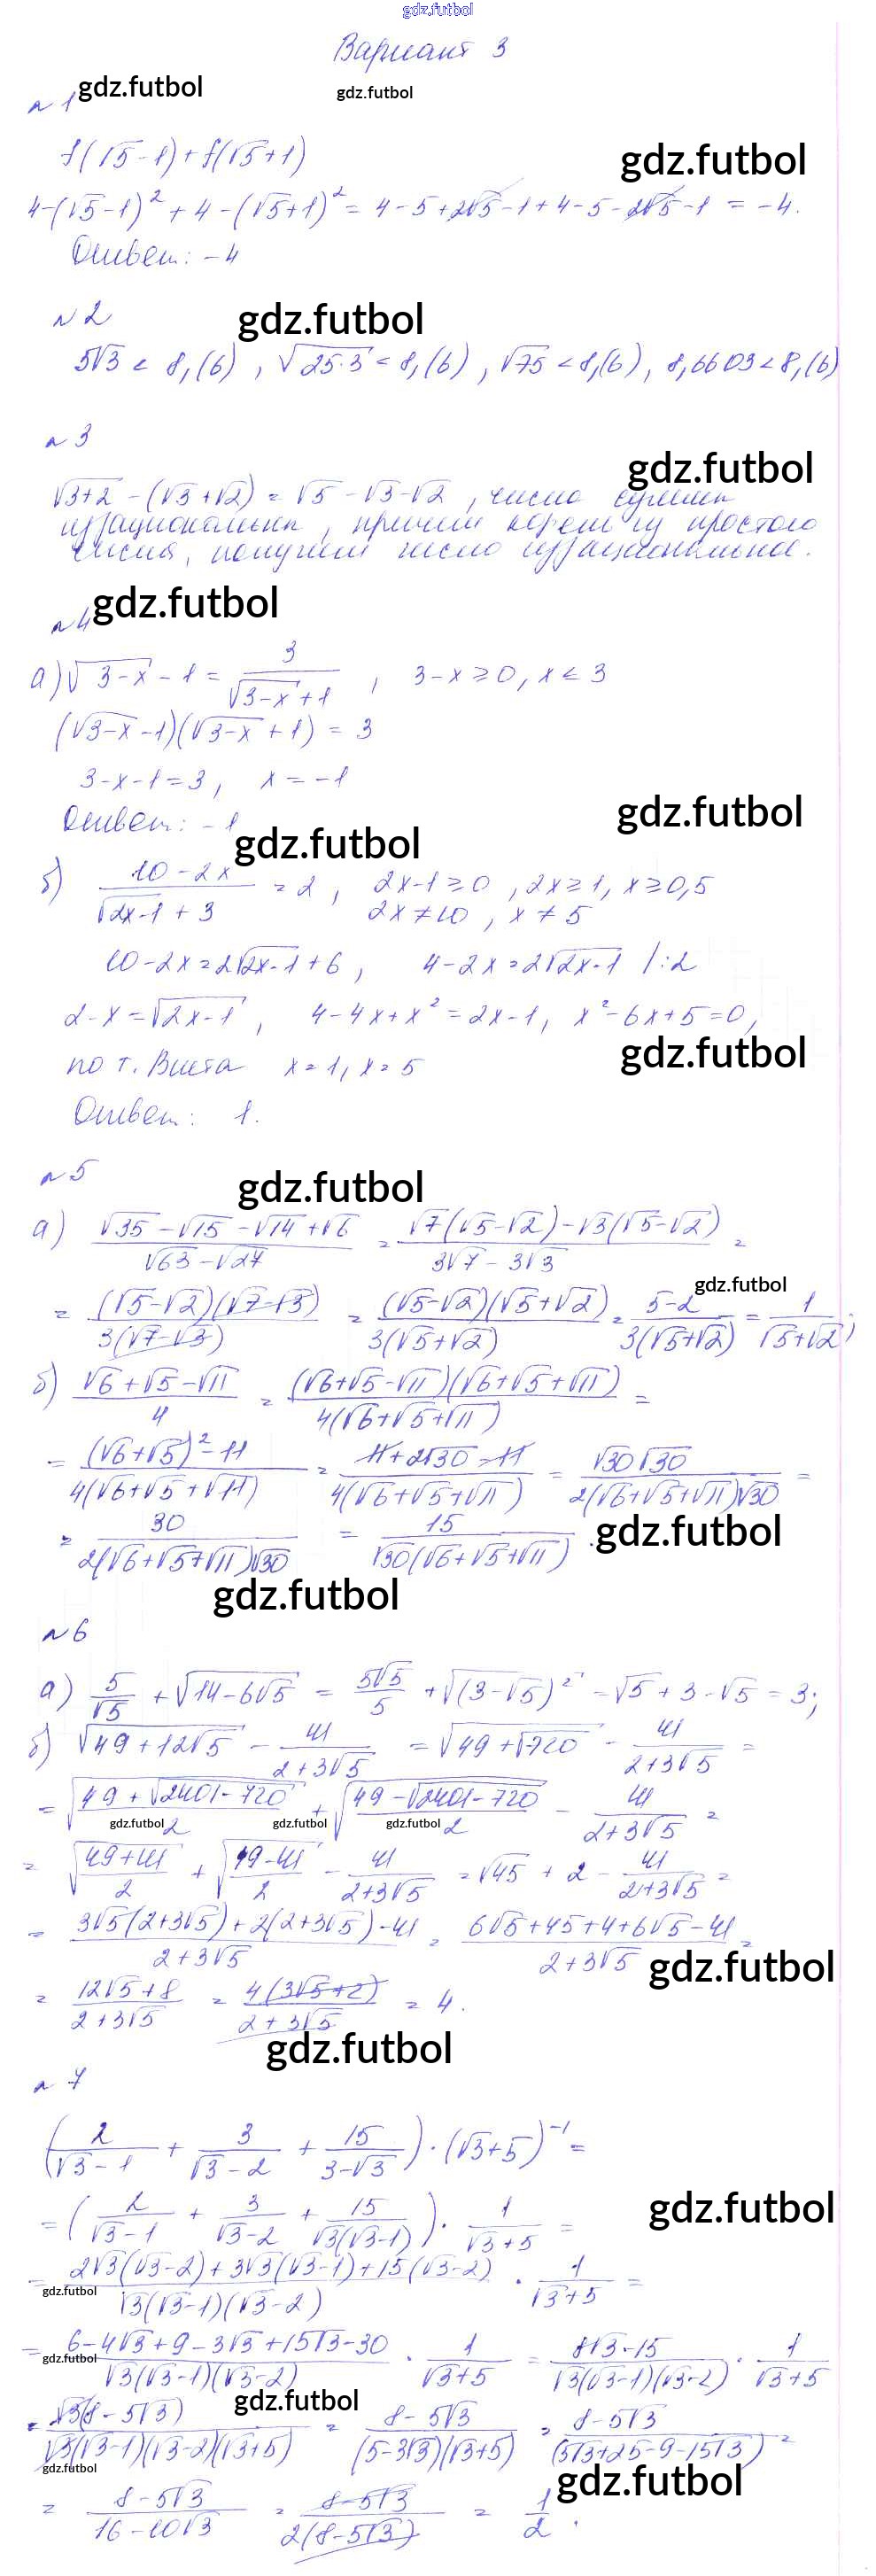 gdz.futbol
Вариант 3
gdz.futbol
gdz.futbol
№ 1
f(√5-1)+f(√5+1)
gdz.futbol
4-(√5-1)²+4-(√5+1)²=4-5+2√5-1+4-5-2√5-1=-4.
Ответ: -4
№ 2
gdz.futbol
5√3 < 8,(6), √25·3 < 8,(6), √75 < 8,(6), 8,6603 < 8,(6)
№ 3
gdz.futbol
√3+2 -(√3+√2) = √5-√3-√2, число
иррациональны, причём корень из простого
числа, получаем число иррациональное.
gdz.futbol
№ 4
а) √3-x - 1 = 3/(√3-x + 1), 3-x ≥ 0, x ≤ 3
(√3-x - 1)(√3-x + 1) = 3
3-x-1=3, x=-1
gdz.futbol
Ответ: -1
gdz.futbol
б) (10-2x)/(√2x-1 + 3) = 2, 2x-1 ≥ 0, 2x ≥ 1, x ≥ 0,5
2x ≠ 10, x ≠ 5
10-2x=2√2x-1+6, 4-2x=2√2x-1 /:2
2-x=√2x-1, 4-4x+x²=2x-1, x²-6x+5=0,
gdz.futbol
по т. Виета x=1, x=5
Ответ: 1.
№ 5
gdz.futbol
а) (√35-√15-√14+√6)/(√63-√27) = (√7(√5-√2)-√3(√5-√2))/(3√7-3√3) =
gdz.futbol
= ((√5-√2)(√7-√3))/(3(√7-√3)) = ((√5-√2)(√5+√2))/(3(√5+√2)) = (5-2)/(3(√5+√2)) = 1/(√5+√2);
б) (√6+√5-√11)/4 = ((√6+√5-√11)(√6+√5+√11))/(4(√6+√5+√11)) =
= ((√6+√5)²-11)/(4(√6+√5+√11)) = (11+2√30-11)/(4(√6+√5+√11)) = (√30√30)/(2(√6+√5+√11)√30) =
= 30/(2(√6+√5+√11)√30) = 15/(√30(√6+√5+√11)).
gdz.futbol
gdz.futbol
№ 6
а) 5/√5 + √14-6√5 = 5√5/5 + √(3-√5)² = √5+3-√5 = 3;
б) √49+12√5 - 41/(2+3√5) = √49+√720 - 41/(2+3√5) =
= √(49+√2401-720)/2 + √(49-√2401-720)/2 - 41/(2+3√5) =
gdz.futbol
gdz.futbol
gdz.futbol
= √(49+41)/2 + √(49-41)/2 - 41/(2+3√5) = √45 + 2 - 41/(2+3√5) =
= (3√5(2+3√5)+2(2+3√5)-41)/(2+3√5) = (6√5+45+4+6√5-41)/(2+3√5) =
gdz.futbol
= (12√5+8)/(2+3√5) = 4(3√5+2)/(2+3√5) = 4.
gdz.futbol
№ 7
(2/(√3-1) + 3/(√3-2) + 15/(3-√3))·(√3+5)⁻¹ =
gdz.futbol
= (2/(√3-1) + 3/(√3-2) + 15/(√3(√3-1)))·1/(√3+5) =
= (2√3(√3-2)+3√3(√3-1)+15(√3-2))/(√3(√3-1)(√3-2)) · 1/(√3+5) =
gdz.futbol
= (6-4√3+9-3√3+15√3-30)/(√3(√3-1)(√3-2)) · 1/(√3+5) = (8√3-15)/(√3(√3-1)(√3-2)) · 1/(√3+5)
gdz.futbol
gdz.futbol
= √3(8-5√3)/(√3(√3-1)(√3-2)(√3+5)) = (8-5√3)/((5-3√3)(√3+5)) = (8-5√3)/(5√3+25-9-15√3) =
gdz.futbol
gdz.futbol
= (8-5√3)/(16-10√3) = (8-5√3)/(2(8-5√3)) = 1/2.